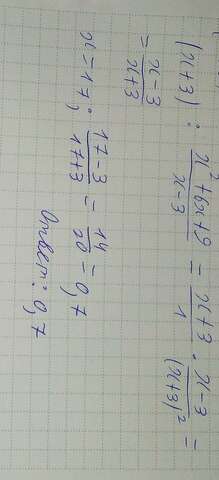 (x+3) : \frac{x²+6x+9}{x-3} = \frac{x+3}{1} · \frac{x-3}{(x+3)²} =
= \frac{x-3}{x+3}
x=17; \frac{17-3}{17+3} = \frac{14}{20} = 0,7
Ответ: 0,7